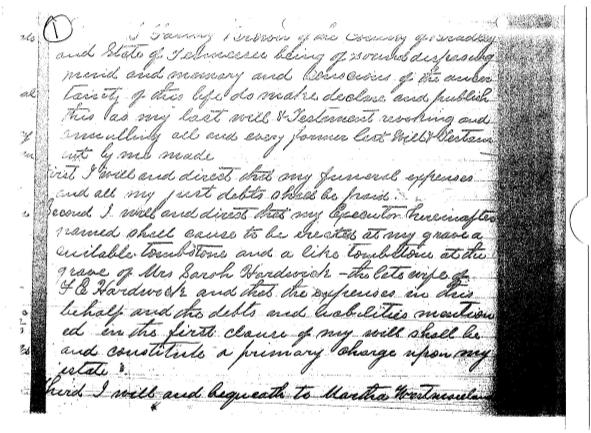 1
I Fanny Brown of the County of Bradley
and State of Tennessee being of sound disposing
mind and memory and conscious of the uncer
tainty of this life do make declare and publish
this as my last will & Testament revoking and
annulling all and every former last Will & Testam
ent by me made
First I will and direct that my funeral expenses
and all my just debts shall be paid.
Second I will and direct that my Executor hereinafter
named shall cause to be erected at my grave a
suitable tombstone and a like tombstone at the
grave of Mrs Sarah Hardwick - the late wife of
F E Hardwick and that the expenses in this
behalf and the debts and liabilities mention
ed in the first clause of my will shall be
and constitute a primary charge upon my
estate.
Third I will and bequeath to Martha Westmoreland